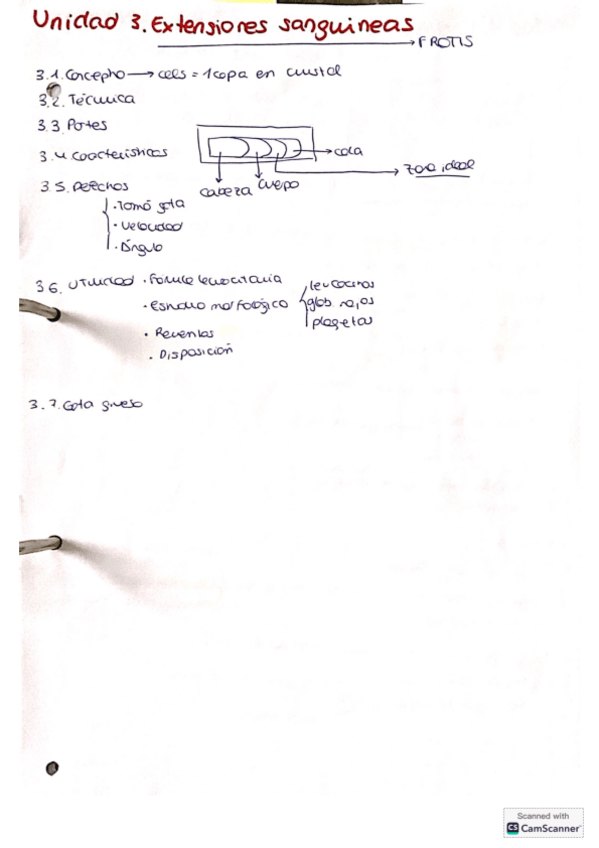 Unidad 3. Extensiones sanguineas
→ FROTIS
3.1. Concepto → cels = 1 capa en cristal
3.2. Técnica
3.3 Partes
3.4 Características
cola
zona ideal
cabeza cuerpo
3.5. Defectos
· Tamó gota
· Velocidad
· Ángulo
3.6. Utilidad · Fórmula leucocitaria
· Estudio morfológico
leucocitos
glob. rojos
plaquetas
· Recuentos
· Disposición
3.7. Gota gruesa
Scanned with
CS CamScanner